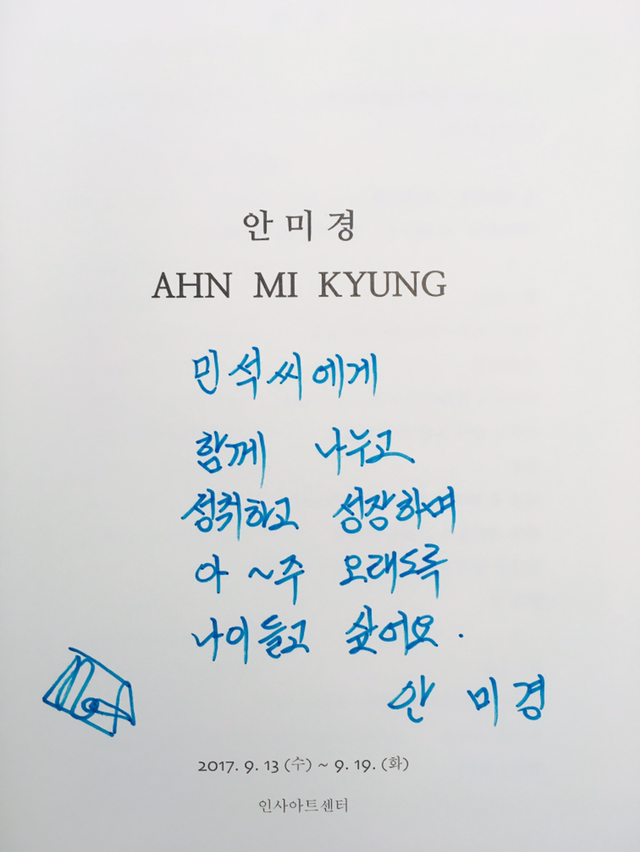 안미경
AHN MI KYUNG
민석씨에게
함께 나누고
성취하고 성장하며
아 ~주 오래도록
나이들고 싶어요.
안 미 경
2017. 9. 13 (수) ~ 9. 19. (화)
인사아트센터